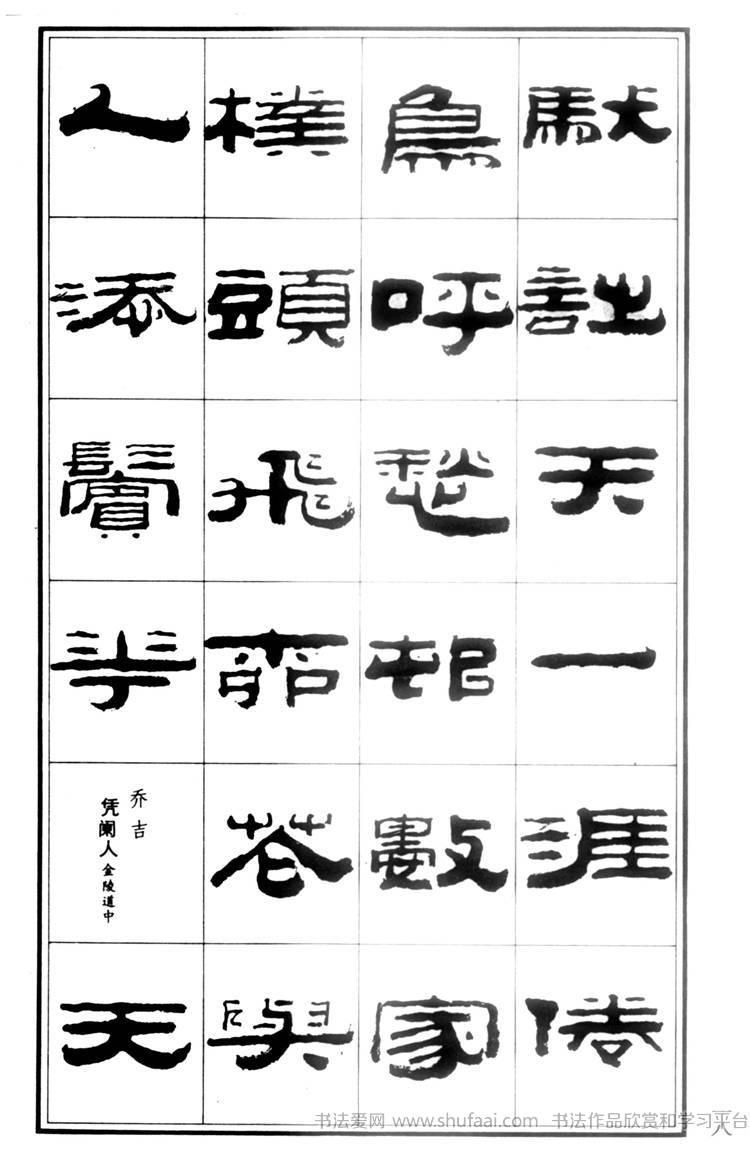 馱詩天一涯倦
鳥呼愁邨數家
樸頭飛柳花與
人添鬢華
乔吉
凭阑人 金陵道中
天
一八
书法爱网 www.shufaai.com 书法作品欣赏和学习平台